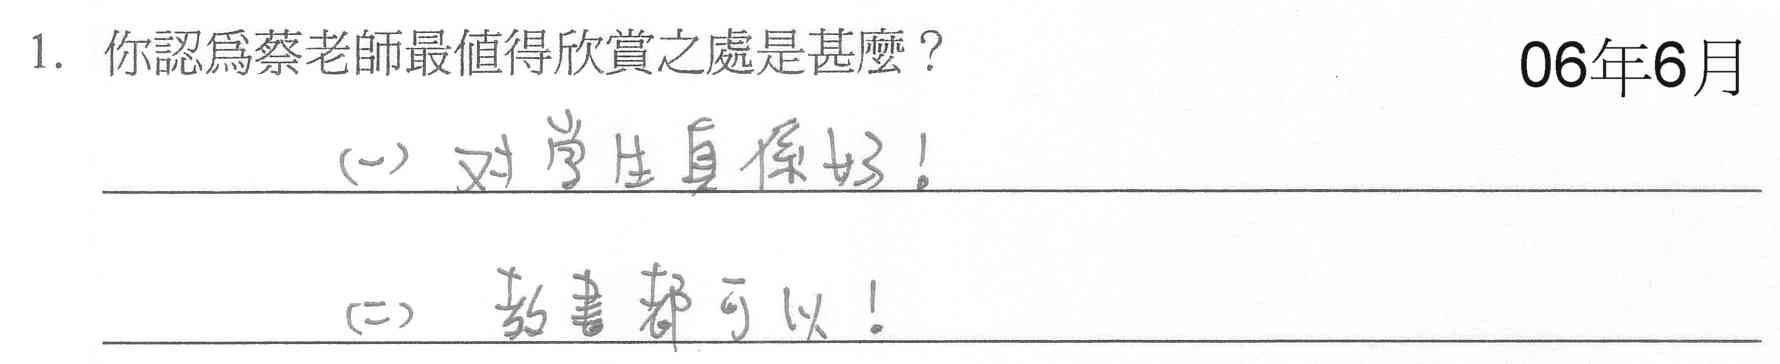 1. 你認爲蔡老師最值得欣賞之處是甚麼？
06年6月
(一) 对学生真係好！
(二) 教書都可以！